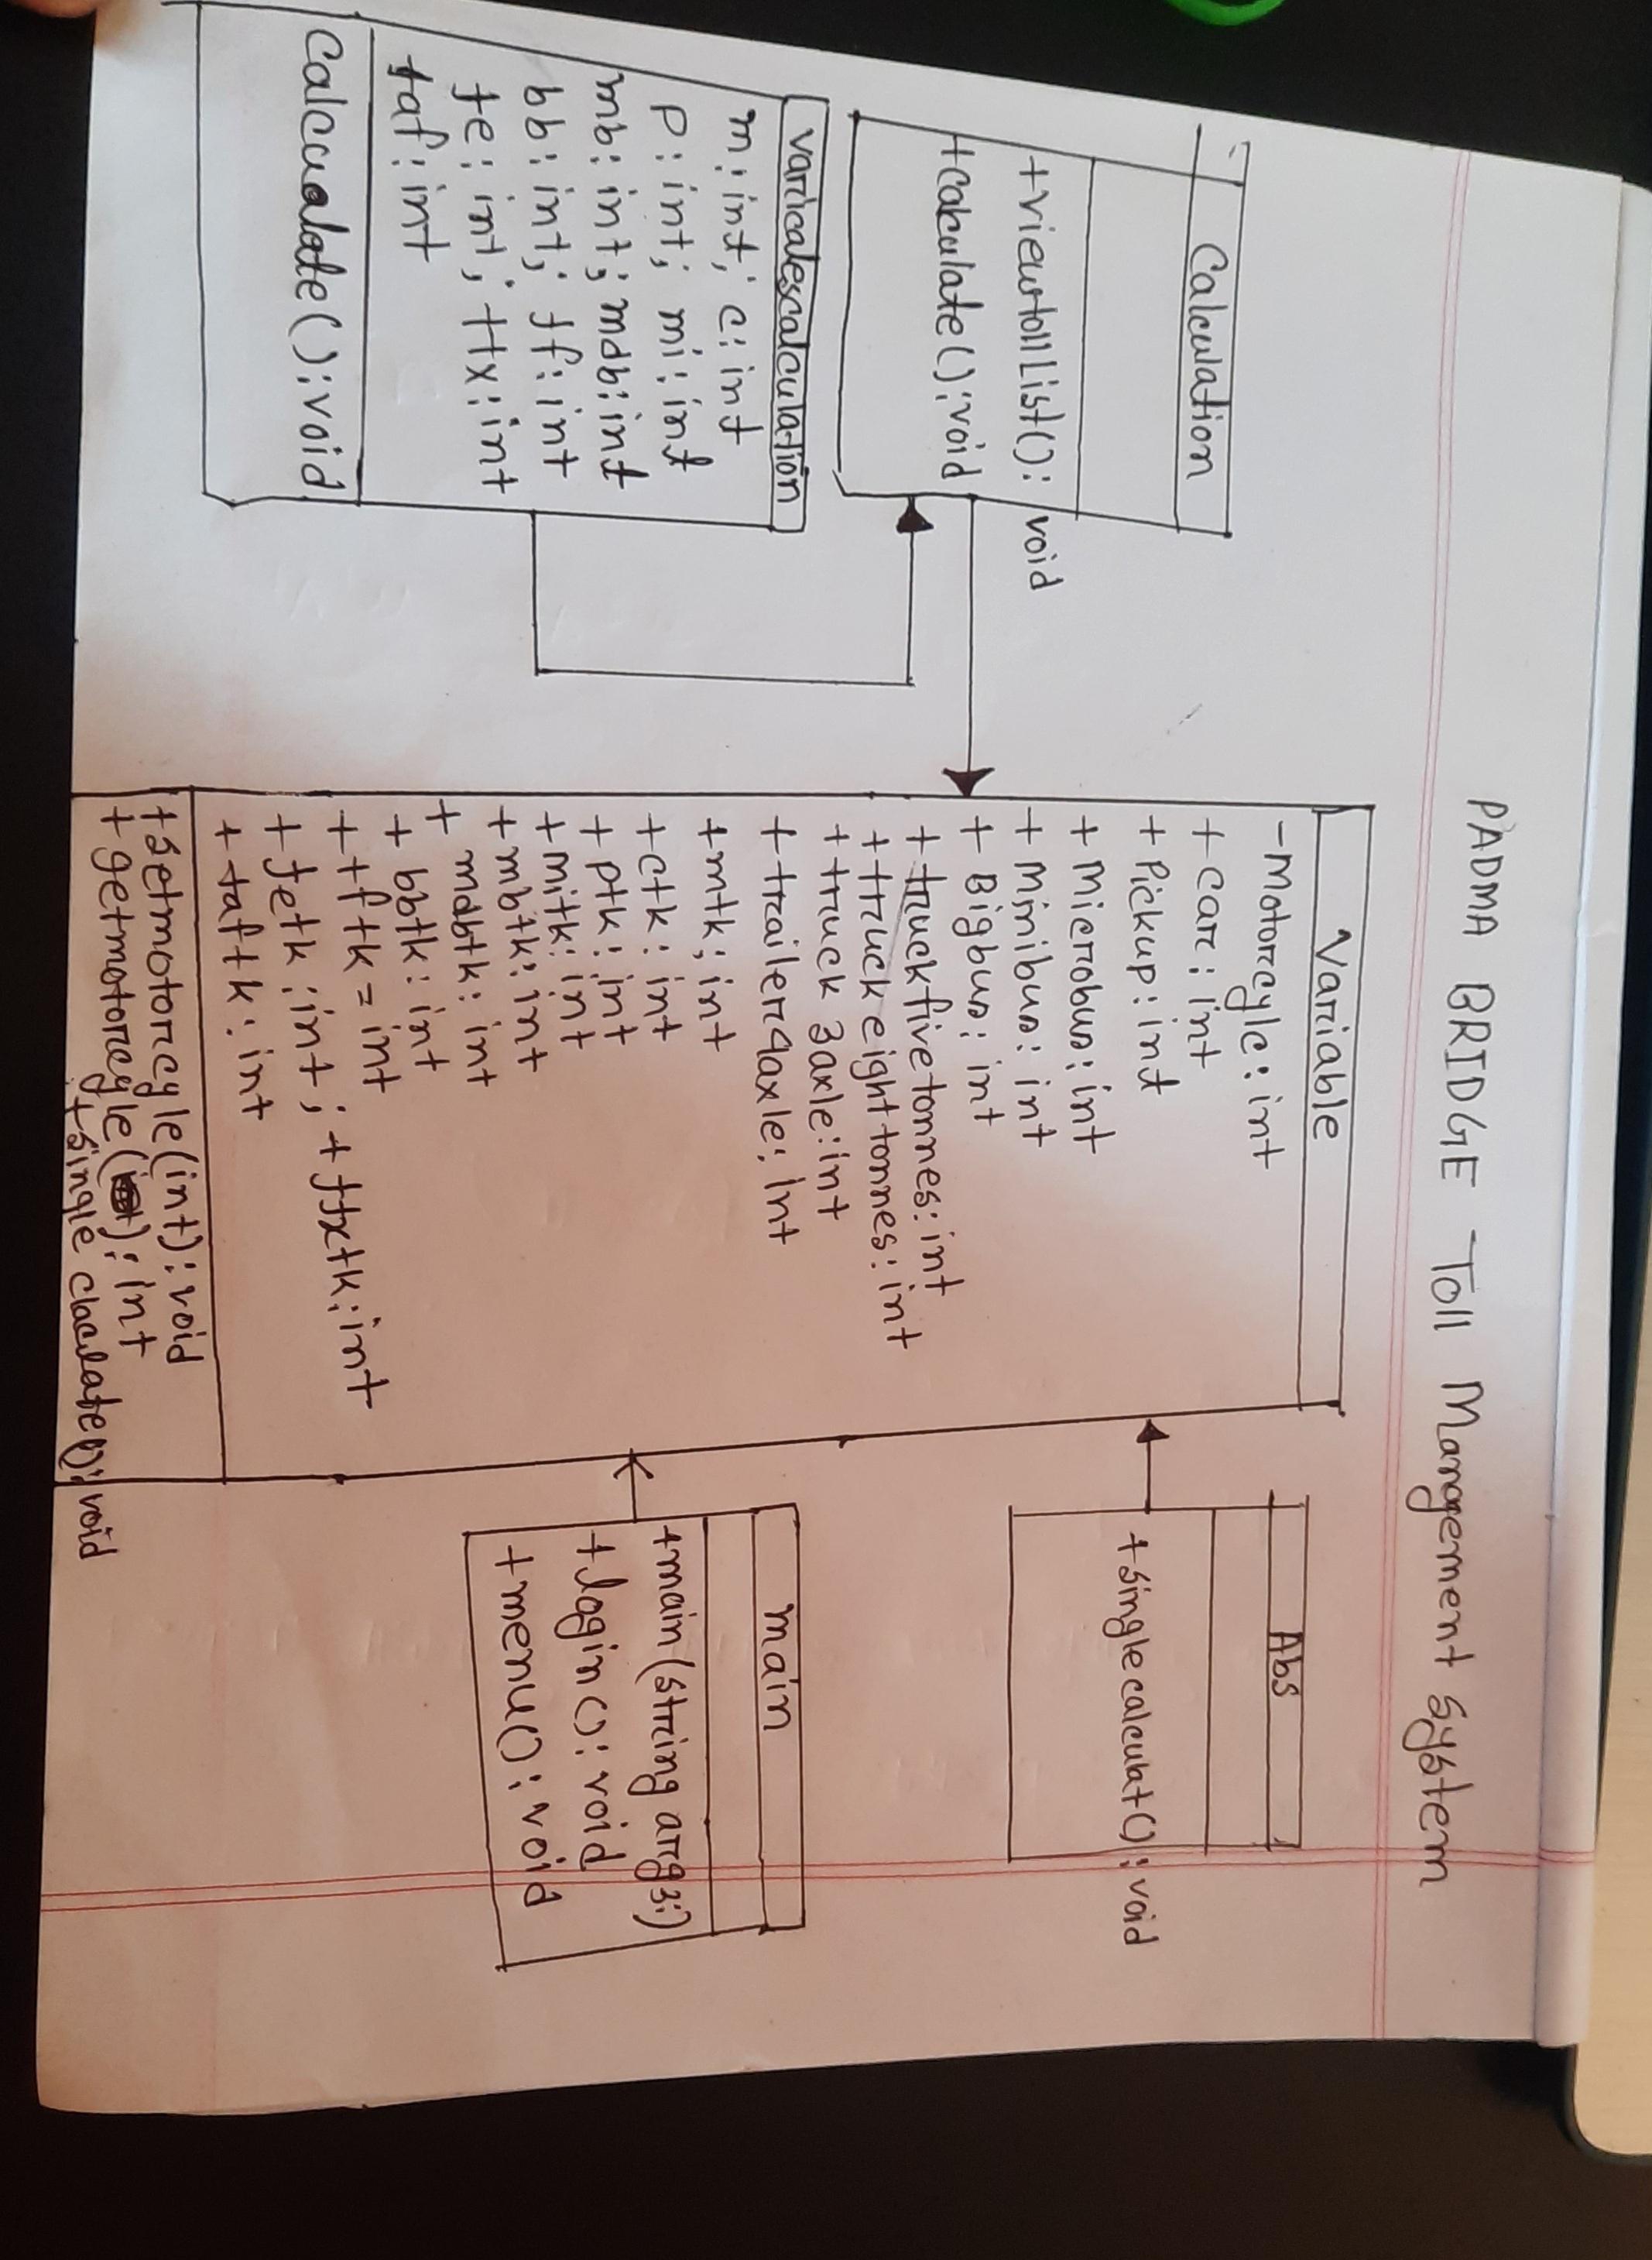 PADMA BRIDGE Toll Management system
Calculation
+viewtolllist(): void
+calculate():void
varicalescalculation
m: int; c: int
p: int; mi: int
mb: int; mdb: int
bb: int; ff: int
fe: int; ttx: int
taf: int
Calcualate(): void
Variable
-motorcycle: int
+ car: int
+ Pickup: int
+ microbus: int
+ minibus: int
+ Bigbus: int
+ truckfivetonnes: int
+ truckeighttonnes: int
+ truck 3axle: int
+ trailer4axle: int
+mtk: int
+ctk: int
+ ptk: int
+ mitk: int
+ mbtk: int
+ mdbtk: int
+ bbtk: int
+ tftk = int
+ fetk: int; + ttxtk: int
+ taftk: int
+setmotorcycle(int): void
+ getmotorcycle(): int
+single claculate(): void
Abs
+singlecalculat(): void
main
+main(string args:)
+login(): void
+menu(): void